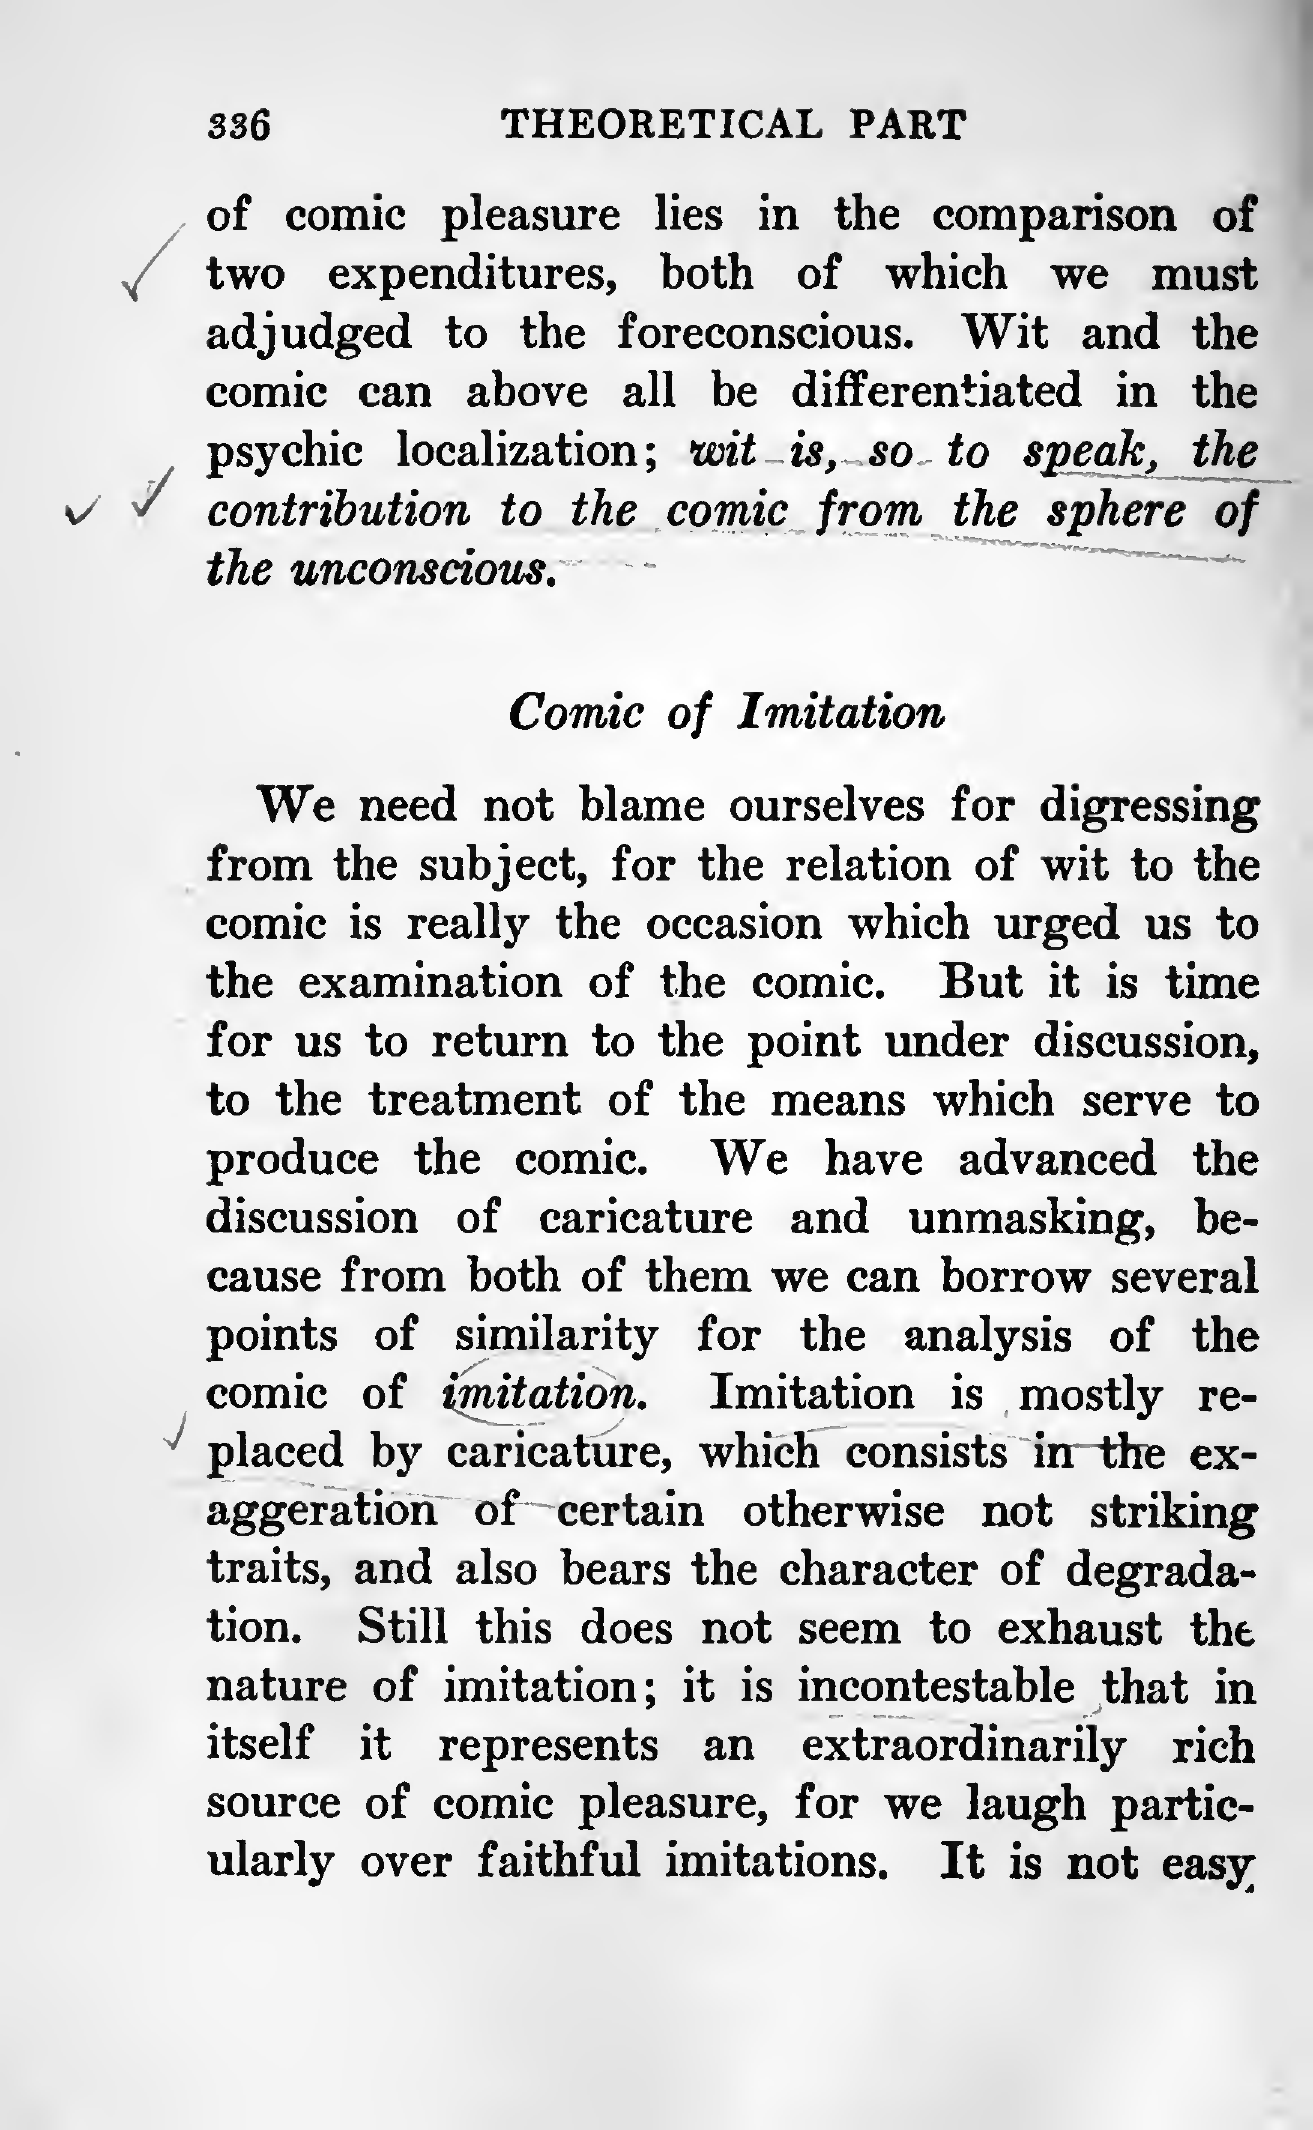 336 THEORETICAL PART
of comic pleasure lies in the comparison of
two expenditures, both of which we must
adjudged to the foreconscious. Wit and the
comic can above all be differentiated in the
psychic localization; wit is, so to speak, the
contribution to the comic from the sphere of
the unconscious.
Comic of Imitation
We need not blame ourselves for digressing
from the subject, for the relation of wit to the
comic is really the occasion which urged us to
the examination of the comic. But it is time
for us to return to the point under discussion,
to the treatment of the means which serve to
produce the comic. We have advanced the
discussion of caricature and unmasking, be-
cause from both of them we can borrow several
points of similarity for the analysis of the
comic of imitation. Imitation is mostly re-
placed by caricature, which consists in the ex-
aggeration of certain otherwise not striking
traits, and also bears the character of degrada-
tion. Still this does not seem to exhaust the
nature of imitation; it is incontestable that in
itself it represents an extraordinarily rich
source of comic pleasure, for we laugh partic-
ularly over faithful imitations. It is not easy